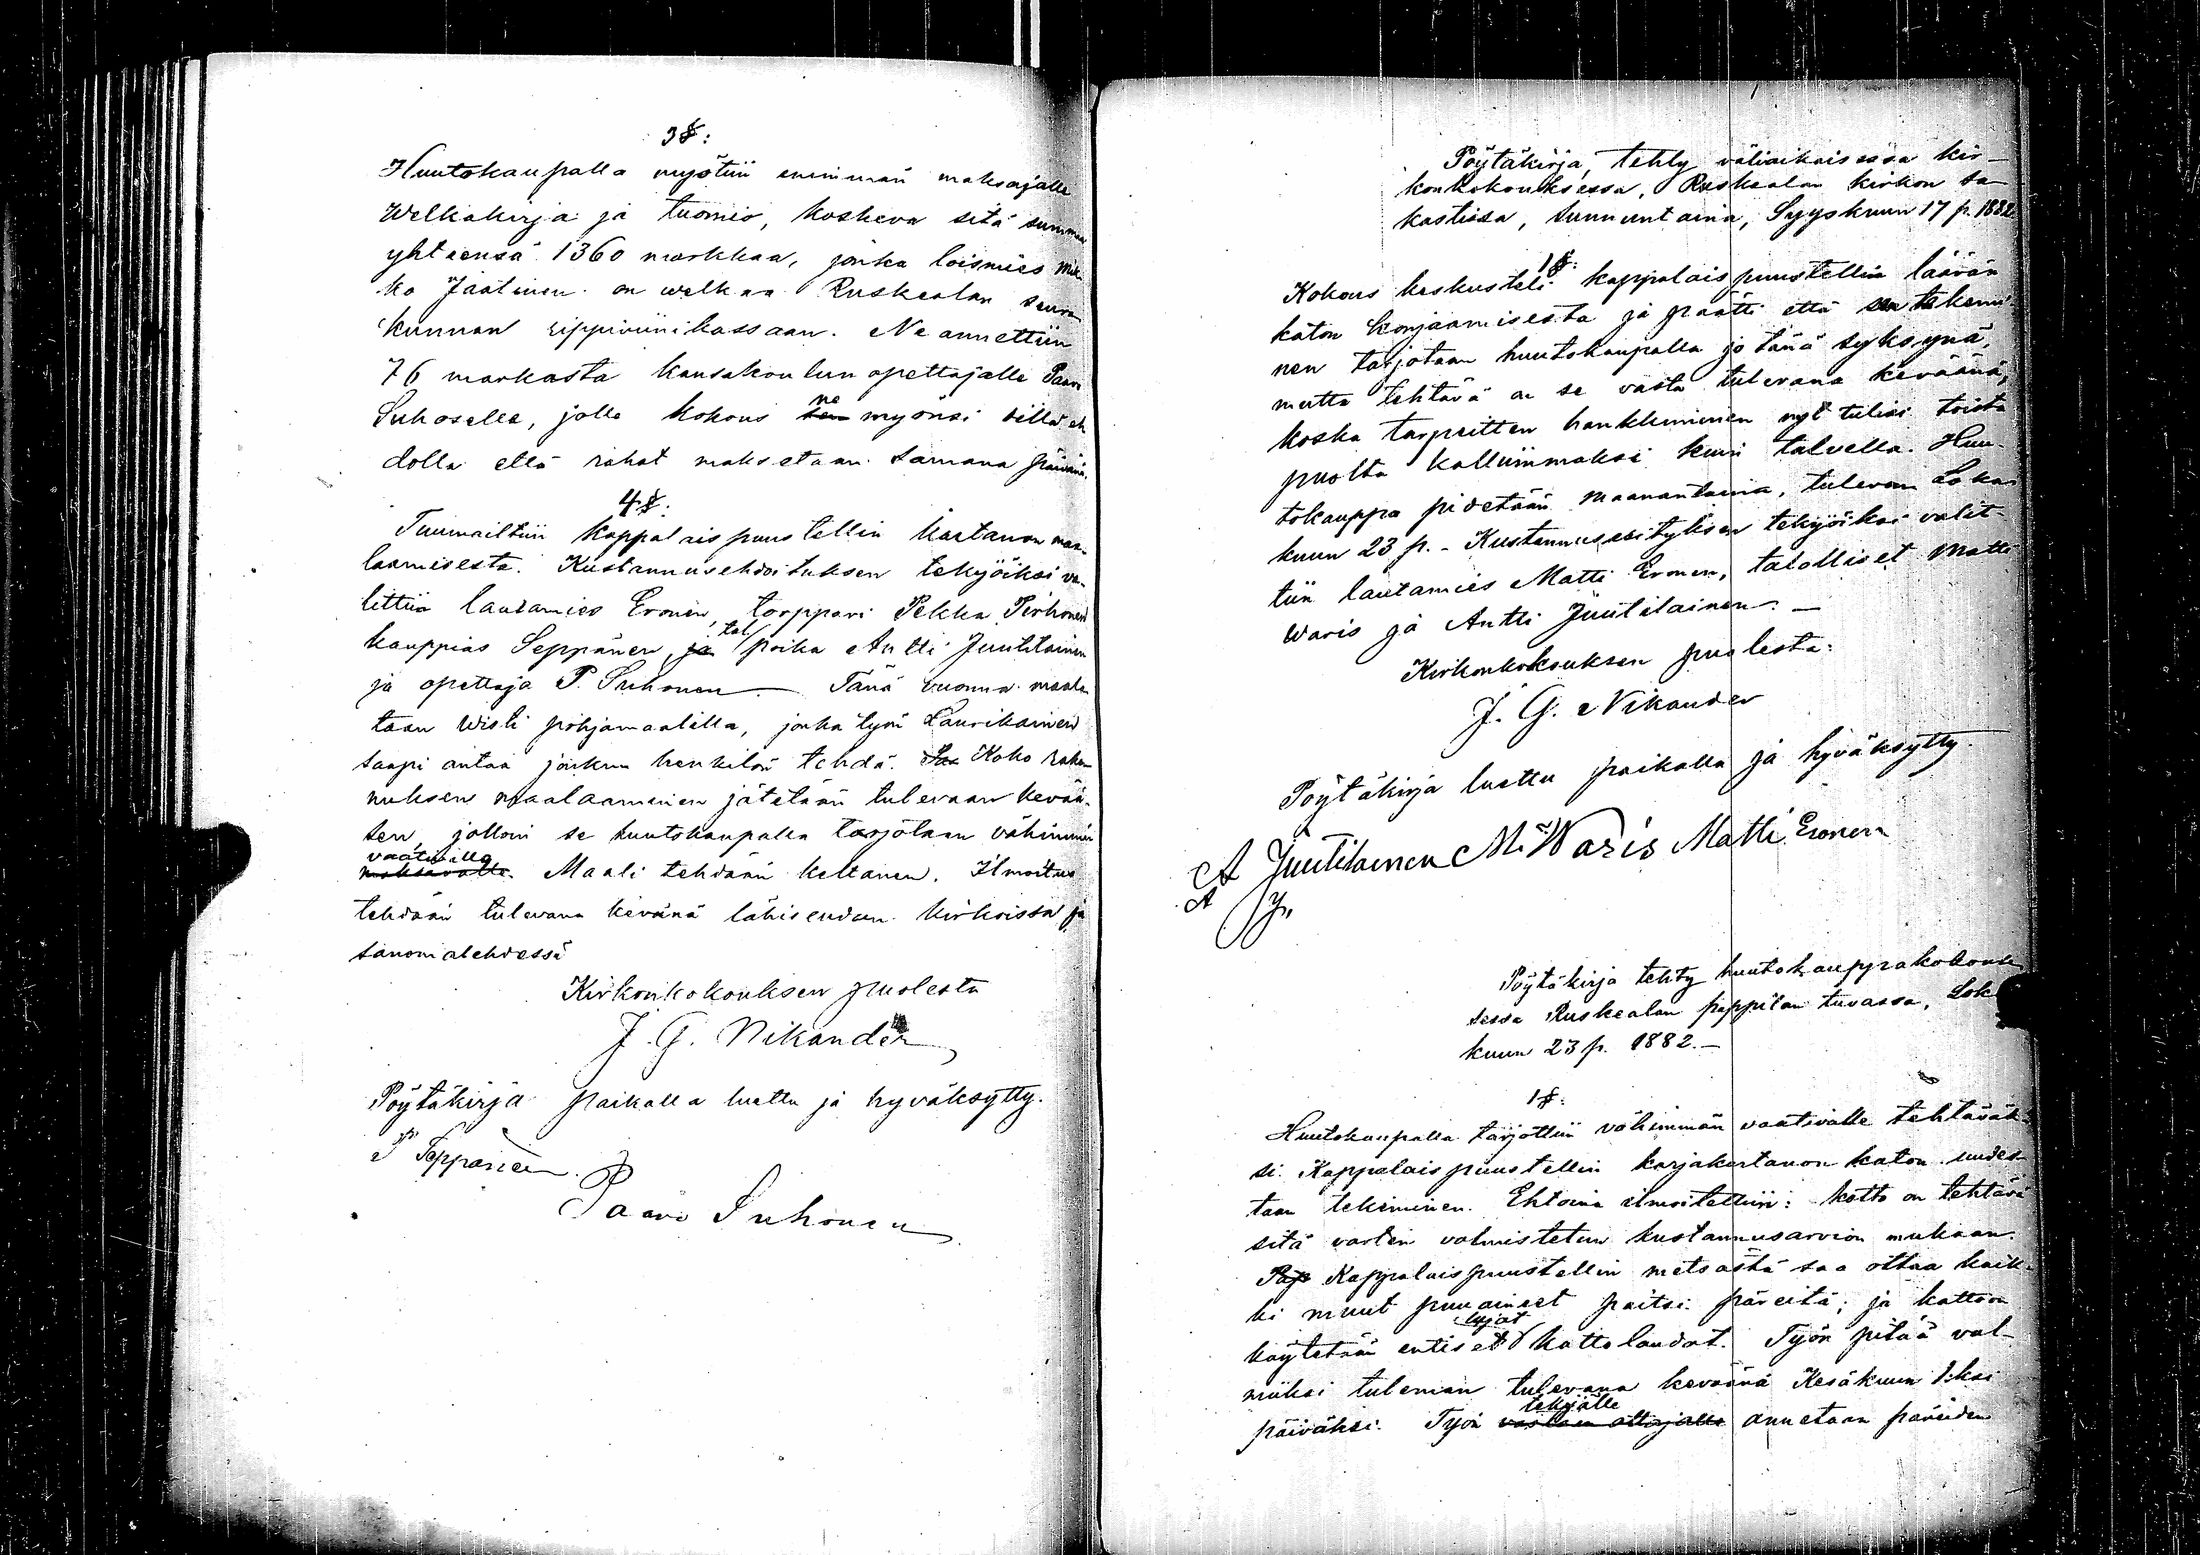 3 §:
Huutokaupalla myötiin enimmän maksajalle
Welkakirja ja tuomio, koskeva sitä summaa
yhteensä 1360 markkaa, jonka loismies Mik
ko Jäätinen on welkaa Ruskealan seura
kunnan rippiviinikassaan. Ne annettiin
76 markasta kansakoulun opettajalle Paavo
Suhoselle, jolle kokous ne myönsi sillä eh
dolla että rahat maksetaan samana päivänä.
4 §:
Tuumailtiin kappalaispuustellin kartanon maa-
laamisesta. Kustannusehdoituksen tekijöiksi va-
littiin lautamies Eronen, torppari Pekka Pirhonen
kauppias Seppänen, tal. poika Antti Juutilainen
ja opettaja P. Suhonen. — Tänä vuonna maala
taan Wisti pohjamaalilla, jonka työn Laurikainen
saapi antaa jonkun henkilön tehdä. Koko raken
nuksen maalaaminen jätetään tulevaan kevää-
sen, jolloin se huutokaupalla tarjotaan vähimmin
vaativalle
maksavalle. Maali tehdään keltanen. Ilmoitus
tehdään tulevana keväänä lähiseudun kirkoissa ja
sanomalehdessä
Kirkonkokouksen puolesta
J. G. Nikander
Pöytäkirja paikalla luettu ja hyväksytty.
P Seppänen.
Paavo Suhonen
Pöytäkirja, tehty väliaikaisessa kir-
konkokouksessa, Ruskealan kirkon sa-
kastissa, sunnuntaina, Syyskuun 17 p. 1882
1 §:
Kokous keskusteli kappalaispuustellin läävän
katon korjaamisesta ja päätti että sen tekemi
nen tarjotaan huutokaupalla jo tänä syksynä,
mutta tehtävä on se vasta tulevana keväänä,
koska tarpeitten hankkiminen nyt tulisi toista
puolta kalliimmaksi kuin talvella. Huu-
tokauppa pidetään maanantaina, tulevan Loka
kuun 23 p. - Kustannusesityksen tekijöiksi valit-
tiin lautamies Matti Eronen, talolliset Matti
Waris ja Antti Juutilainen. —
Kirkonkokouksen puolesta:
J. G. Nikander
Pöytäkirja luettu paikalla ja hyväksytty.
A Juutilainen M. Waris Matti Eronen
A J.
Pöytäkirja tehty huutokauppakokouk
sessa Ruskealan pappilan tuvassa, Lok
kuun 23 p. 1882. —
1 §:
Huutokaupalla tarjottiin vähimmän vaativalle tehtäväk-
si Kappalaispuustellin karjakartanon katon uudes-
taan tekeminen. Ehtoina ilmoitettiin: katto on tehtävä
sitä varten valmistetun kustannusarvion mukaan.
Pap Kappalaispuustellin metsästä saa ottaa kaik-
ki muut puuaineet paitsi päreitä; ja kattoon
käytetään entiset lujat kattolaudat. Työn pitää val-
miiksi tuleman tulevana keväänä Kesäkuun 1:ksi
tekijälle
päiväksi. Työn vastaan ottajalle annetaan päreiden